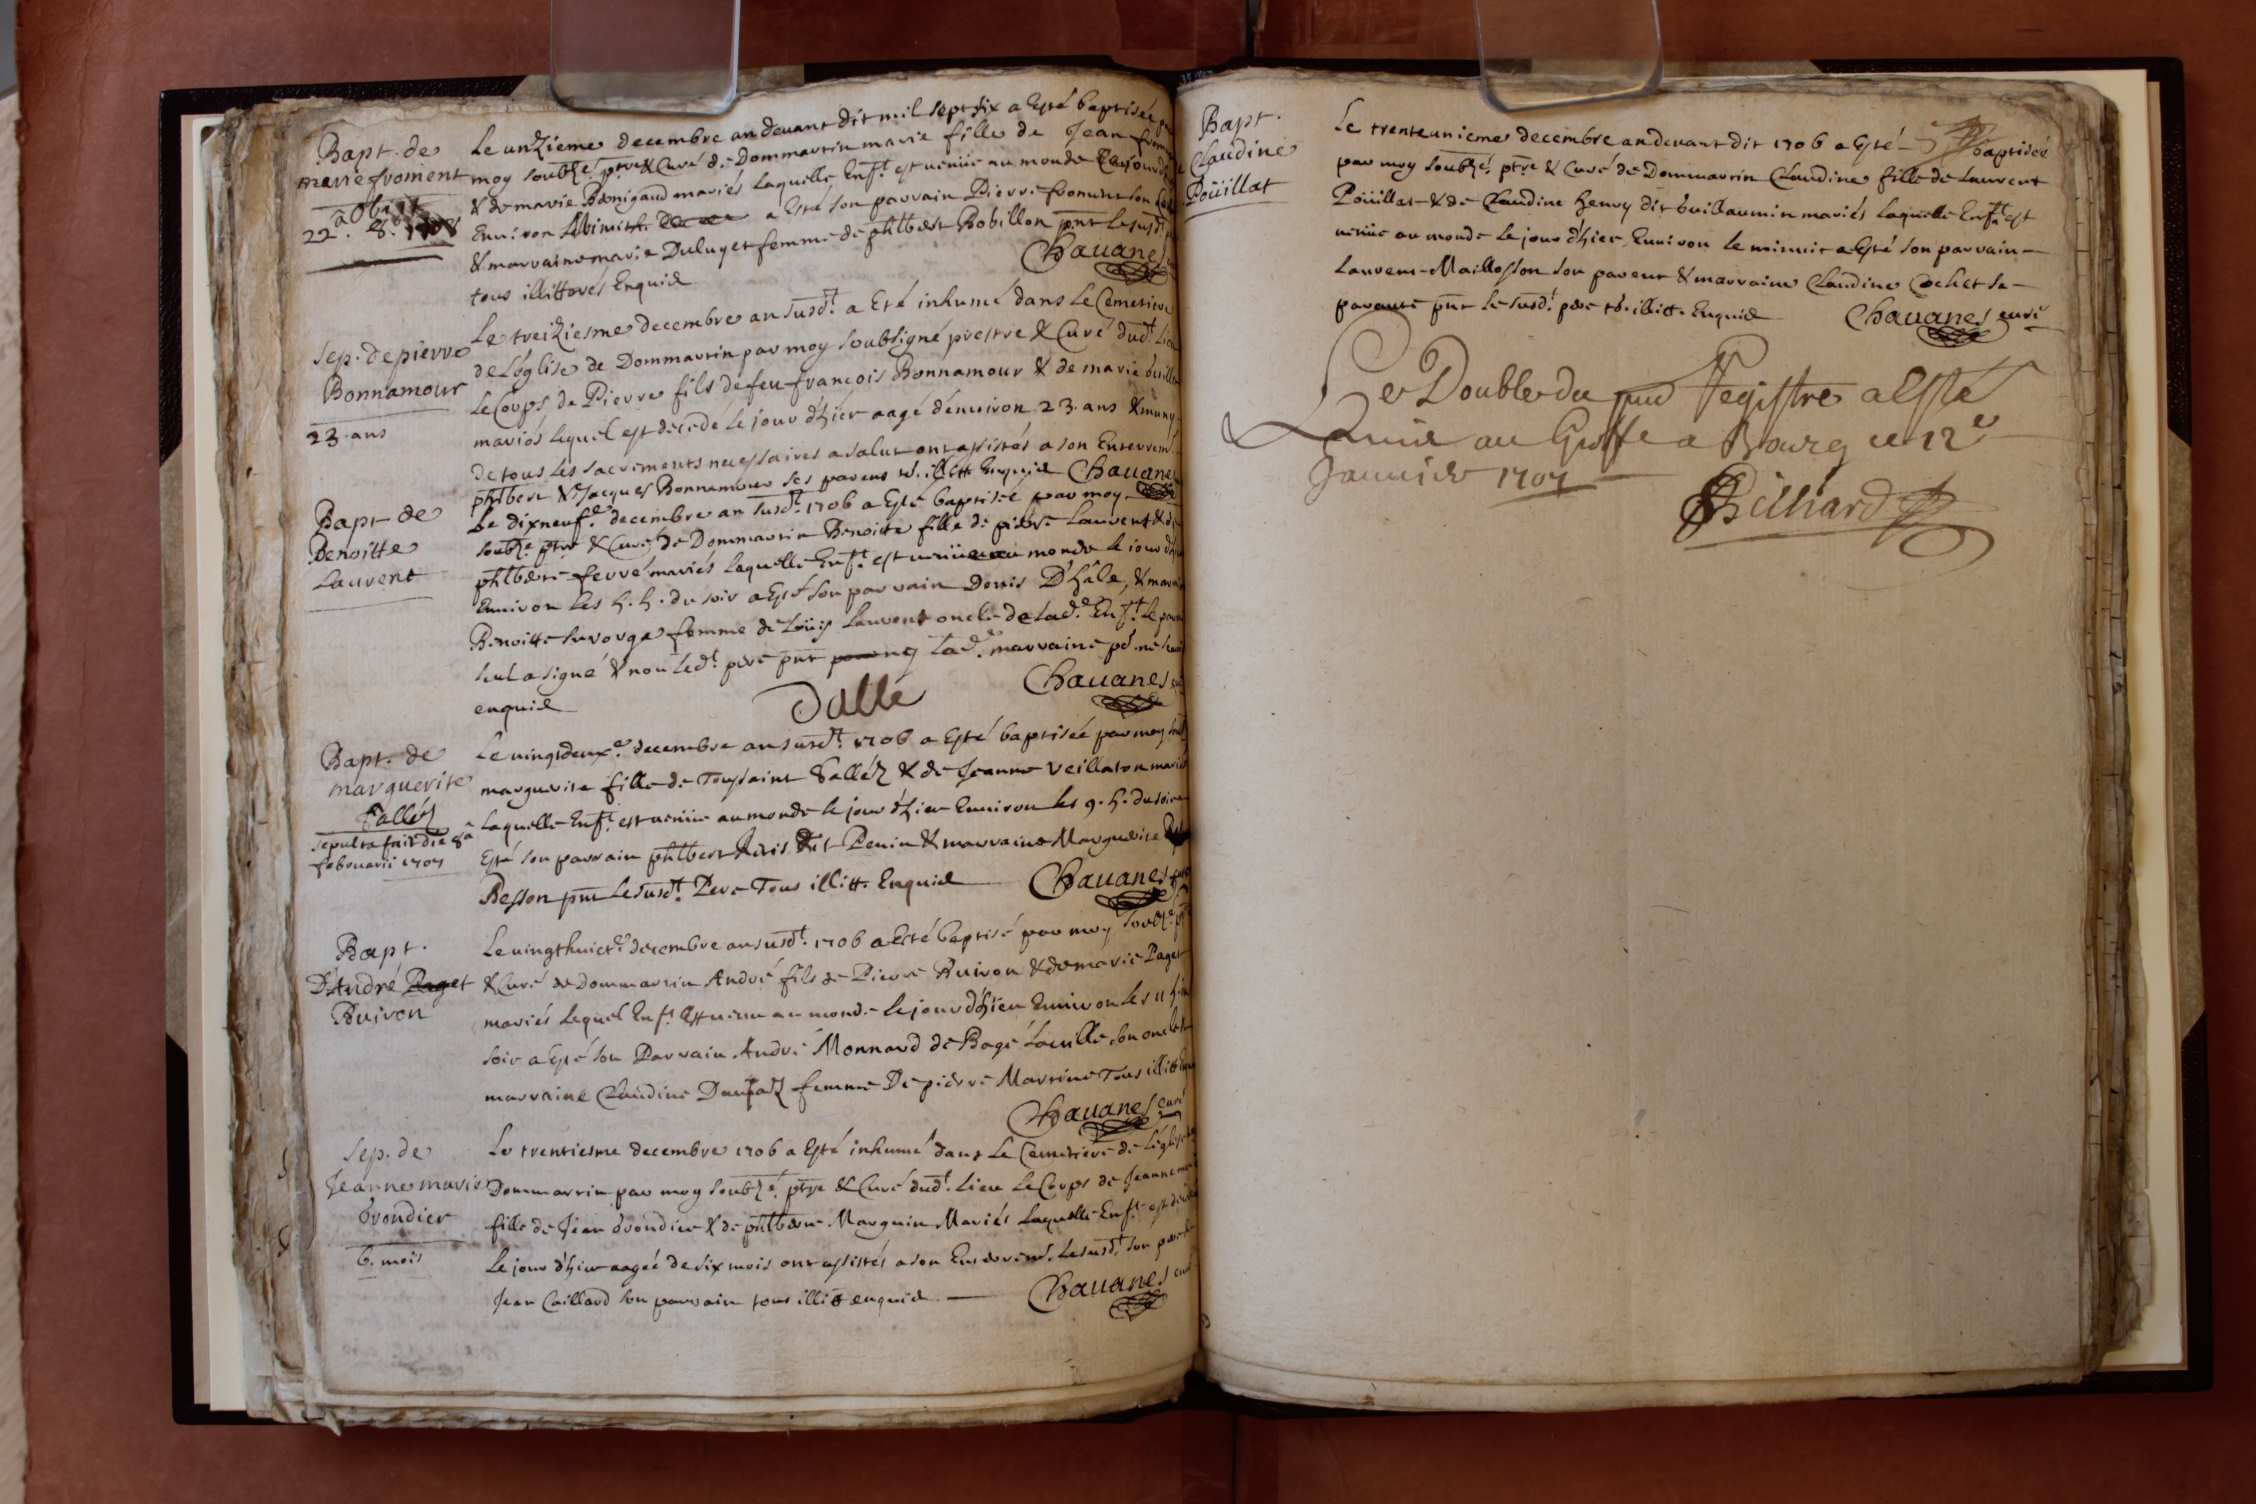 Bapt. de
marie froment
obiit
22ª. 8.bris 1708
Le unzieme decembre an devant dit mil sept six a Esté baptisée
moy soubzé. ptre & Curé de Dommartin marie fille de Jean
& de marie Benigaud mariés laquelle Enft. est venüe au monde
Environ a Esté son parrain Pierre froment son
& marraine marie Duluget femme de philbert Robillon pnt le susd.
tous illitterés Enquis
Chauanes
Sep. de pierre
Bonnamour
23. ans
Le treiziesme decembre an susdt. a Eté inhumé dans le Cemetiere
de L'église de Dommartin par moy soubsigné prestre & Curé dudt. Lieu
Le Corps de Pierre fils de feu françois Bonnamour & de marie
mariés lequel est decedé le jour d'hier aagé d'environ 23. ans & muny
de tous les sacrements necessaires a salut ont assistés a son Enterremt.
philbert & Jacques Bonnamour ses parens illitt. Enquis Chauanes
Bapt de
Benoitte
Laurent
Le dixneufe. decembre an susdt. 1706 a Esté baptisée par moy
soubzé. ptre & Curé de Dommartin Benoitte fille de pierre Laurent & de
philberte ferré mariés laquelle Enft. est venüe au monde le jour
Environ les h. du soir a Esté son parrain Denis D'hâle, &
Benoitte femme de Loüis Laurent oncle de lad. Enft. Le
seul a signé & non led. pere pnt ny lad. marraine pr. ne
enquis
Dallé
Chauanes
Bapt. de
marguerite
Sallés
sepulta fuit die 8ª
februarii 1707
Le vingtdeuxe. decembre an susdt. 1706 a Esté baptisée par moy
marguerite fille de Toussaint Salléz & de Jeanne Veillaton mariés
Laquelle Enft. est venüe au monde le jour d'hier Environ les 9. h. du soir
Esté son parrain philbert dit Penin & marraine Marguerite
Besson pnt Le susdt. Pere Tous illitt. Enquis
Chauanes
Bapt.
D'André Paget
Buiron
Le vingthuicte. decembre an susdt. 1706 a Eté baptisé par moy
& Curé de Dommartin André fils de Pierre Buiron & de marie Paget
mariés Lequel Enft. Est venu au monde le jour d'hier Environ les 11 h.
soir a Esté son Parrain André Monnard de Bagé La ville son oncle
marraine Claudine femme De pierre Marrine Tous illitt
Chauanes curé
Sep. de
Jeanne marie
brondier
6. mois
Le trentiesme decembre 1706 a Esté inhumé dans Le Cemetiere de L'église
Dommartin par moy soubzé. ptre & Curé dudt. Lieu Le Corps de Jeanne
fille de Jean brondier & de philberte Marguin Mariés Laquelle Enft. est
Le jour d'hier aagée de six mois ont assistés a son Enterremt. Le susdt. son pere
Jean Caillard son parrain tous illitt enquis
Chauanes curé
Bapt.
Claudine
Poüillat
Le trenteunieme decembre an devant dit 1706 a Esté baptisée
par moy soubzé. ptre & Curé de Dommartin Claudine fille de Laurent
Poüillat & de Claudine henry dit Guillaumin mariés Laquelle Enft. est
venüe au monde Le jour d'hier Environ le minuit a Esté son parrain
Laurent Maillosson son parent & marraine Claudine Cochet sa
parente pnt Le susdt. pere ts. illitt. Enquis
Chauanes curé
Le Double du pnt Registre a Esté
Remis au Greffe a Bourg ce 12e
Januier 1707
Billiard